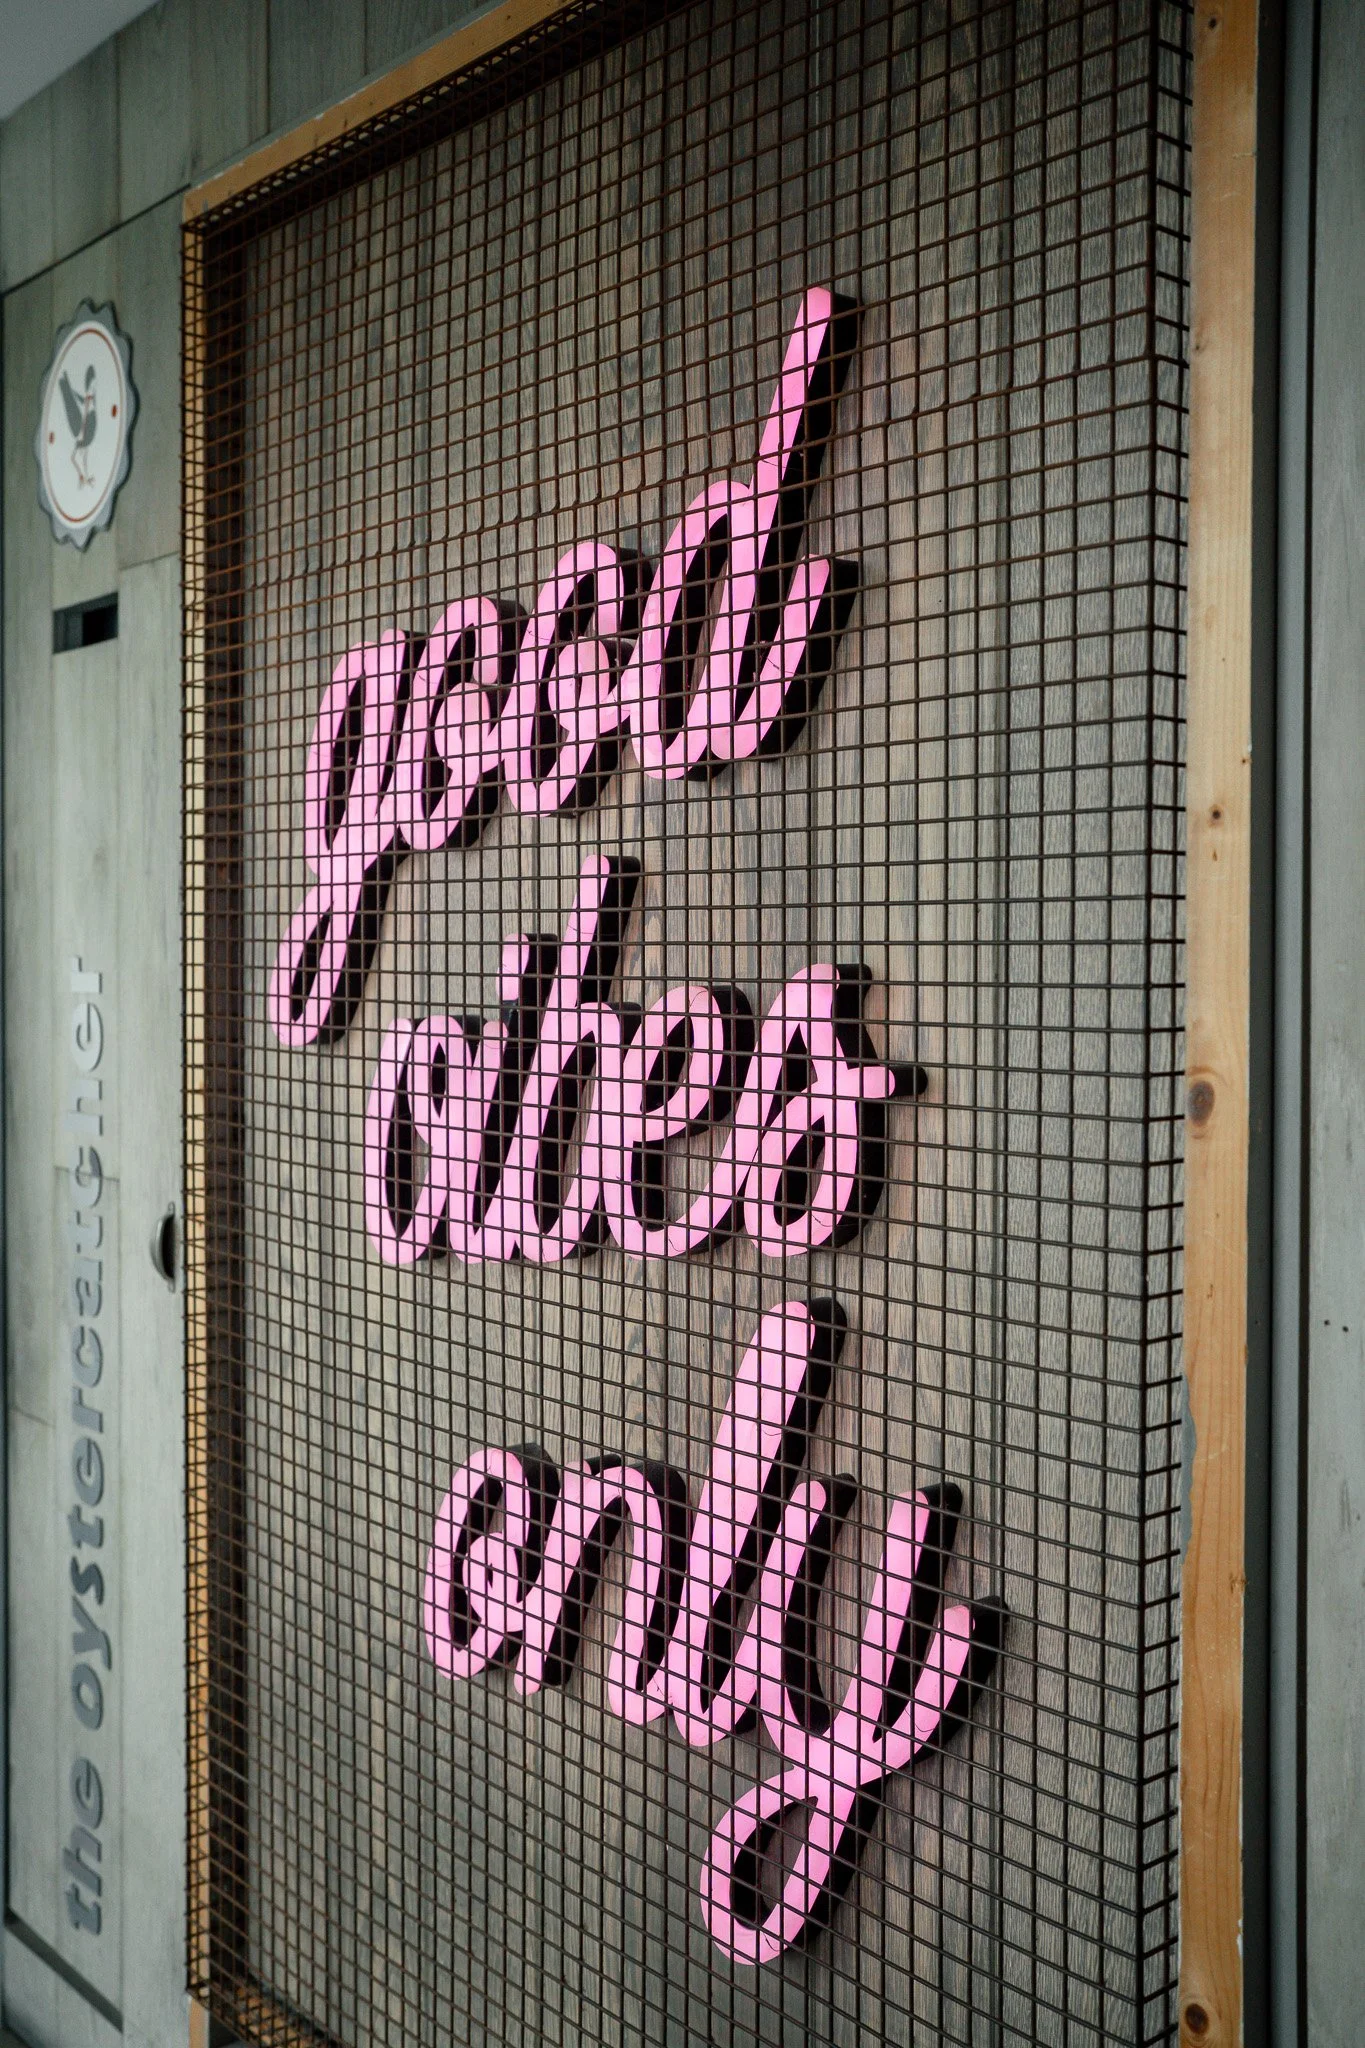 good
vibes
only
the oystercatcher